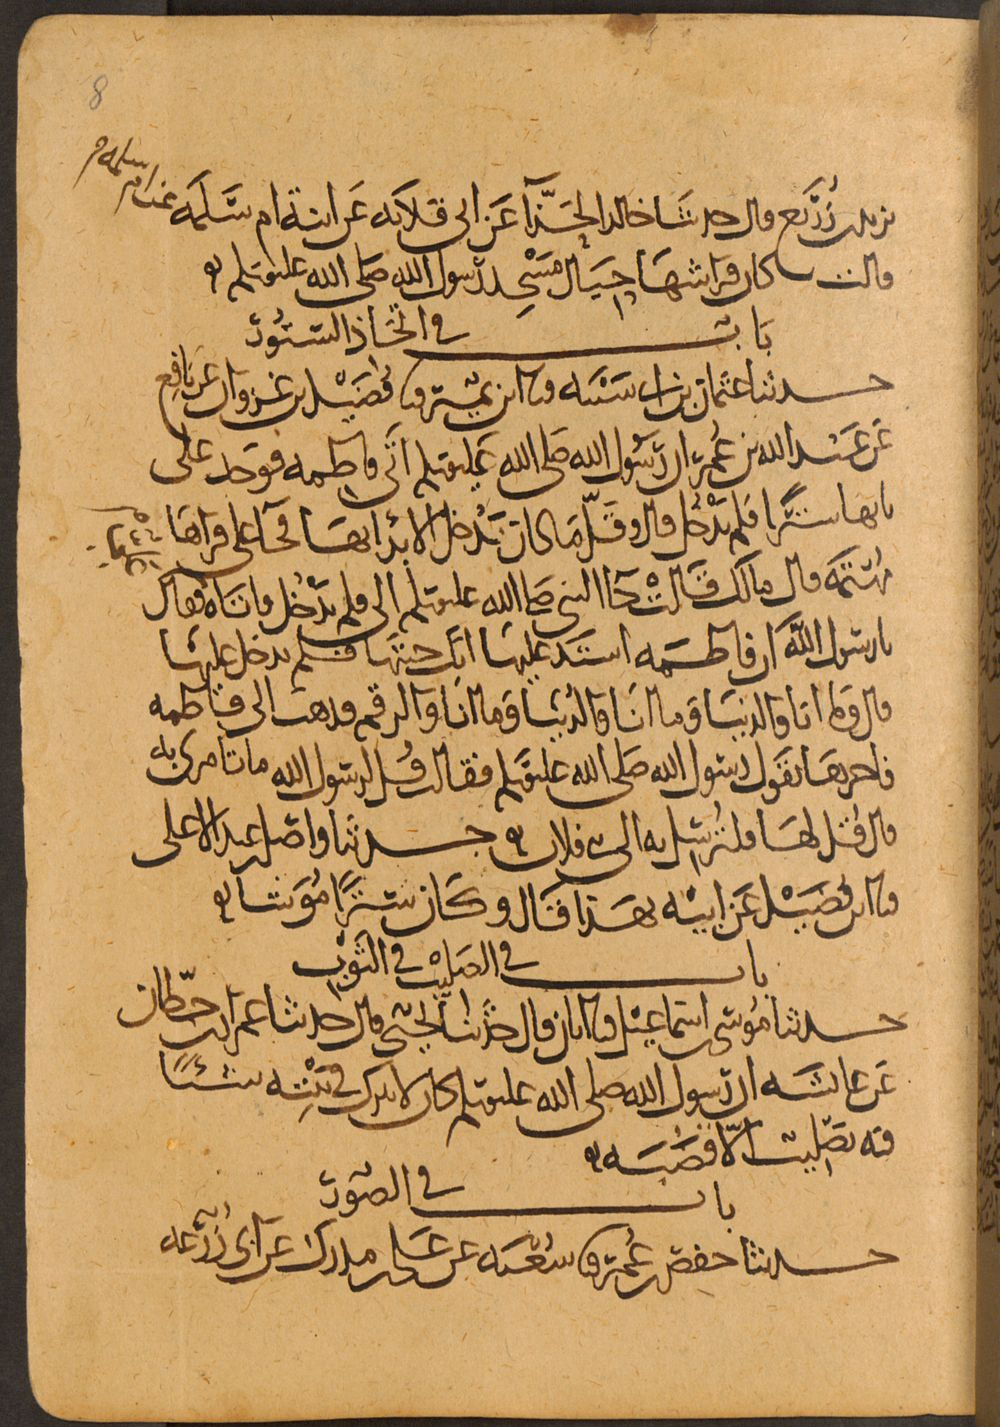 8
عن ام سلمه
يزيد بن زُرَيع قال حدثنا خالد الحذّآ عن ابى قلابه عن ابنة ام سلمه
قالت كان فراشها حيال مسجد رسول الله صلى الله عليه وسلم
باب في اتخاذ الستور
حدثنا عثمان بن ابى شيبه نا ابن نمير نا فضيل بن غزوان عن نافع
عن عبد الله بن عمر ان رسول الله صلى الله عليه وسلم اتى فاطمه فوجد على
بابها سترا فلم يدخل قال وقلّ ما كان يدخل الا بدا بها فجآ على فراها
مهتمه قال مالك قالت جا النبي صلى الله عليه وسلم الى فلم يدخل فاتاه فقال
يا رسول الله ان فاطمه اشتد عليها انك جئتها فلم تدخل عليها
قال وما انا والدنيا وما انا والدنيا وما انا والرقم فذهب الى فاطمه
فاخبرها بقول رسول الله صلى الله عليه وسلم فقالت قل لرسول الله ما تامرنى به
قال قل لها فلترسل به الى بنى فلان حدثنا واصل بن عبد الاعلى
نا ابن فضيل عن ابيه بهذا قال وكان سترًا موشا
باب في الصليب في الثوب
حدثنا موسى بن اسماعيل نا ابان قال حدثنا يحيى قال حدثنا عمران بن حطّان
عن عائشه ان رسول الله صلى الله عليه وسلم كان لا يترك في بيته شيئًا
فيه تصليب الّا قضبه
باب في الصور
حدثنا حفص بن عمر نا شعبه عن على بن مدرك عن ابى زرعه